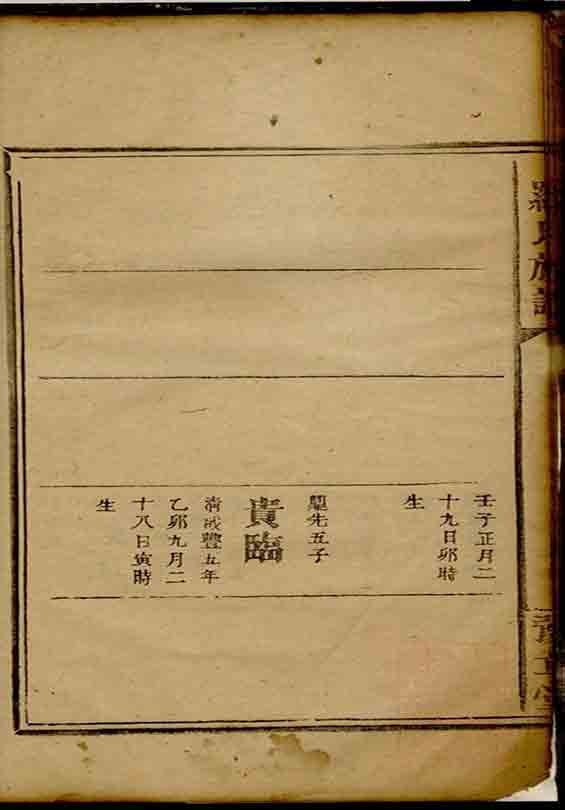 羅氏族譜
壬子正月二
十九日卯時
生
先五子
貴臨
清咸豐五年
乙卯九月二
十八日寅時
生
豫章堂